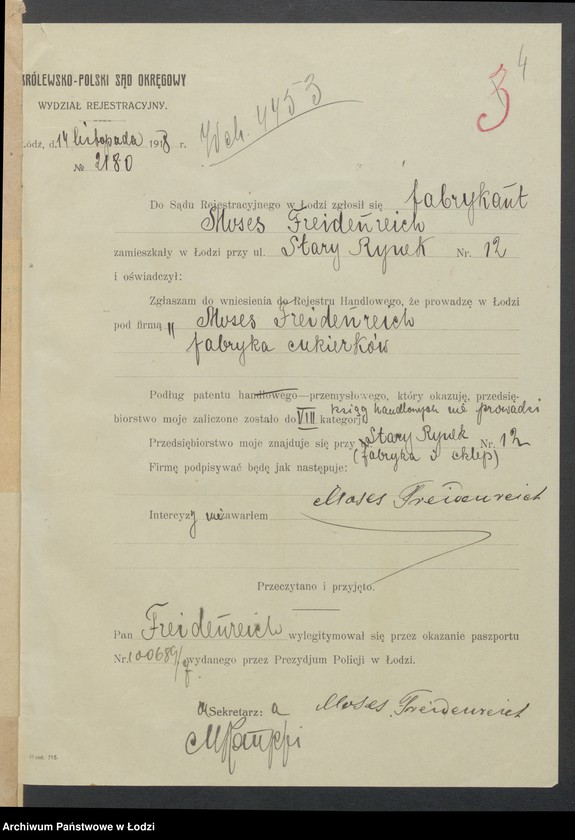 4
3
KRÓLEWSKO-POLSKI SĄD OKRĘGOWY
WYDZIAŁ REJESTRACYJNY.
Łódź, d. 14 listopada 1918 r.
№ 2180
4453
Do Sądu Rejestracyjnego w Łodzi zgłosił się fabrykant
Moses Freidenreich
zamieszkały w Łodzi przy ul. Stary Rynek Nr. 12
i oświadczył:
Zgłaszam do wniesienia do Rejestru Handlowego, że prowadzę w Łodzi
pod firmą „ Moses Freidenreich
fabryka cukierków
Podług patentu handlowego—przemysłowego, który okazuję, przedsię-
biorstwo moje zaliczone zostało do VIII kategorji ksiąg handlowych nie prowadzi
Przedsiębiorstwo moje znajduje się przy Stary Rynek Nr. 12
(fabryka i sklep)
Firmę podpisywać będę jak następuje:
Moses Freidenreich
Intercyzy nie zawarłem
Przeczytano i przyjęto.
Pan Freidenreich wylegitymował się przez okazanie paszportu
Nr. 100689 wydanego przez Prezydjum Policji w Łodzi.
Sekretarz:
Moses Freidenreich
Archiwum Państwowe w Łodzi